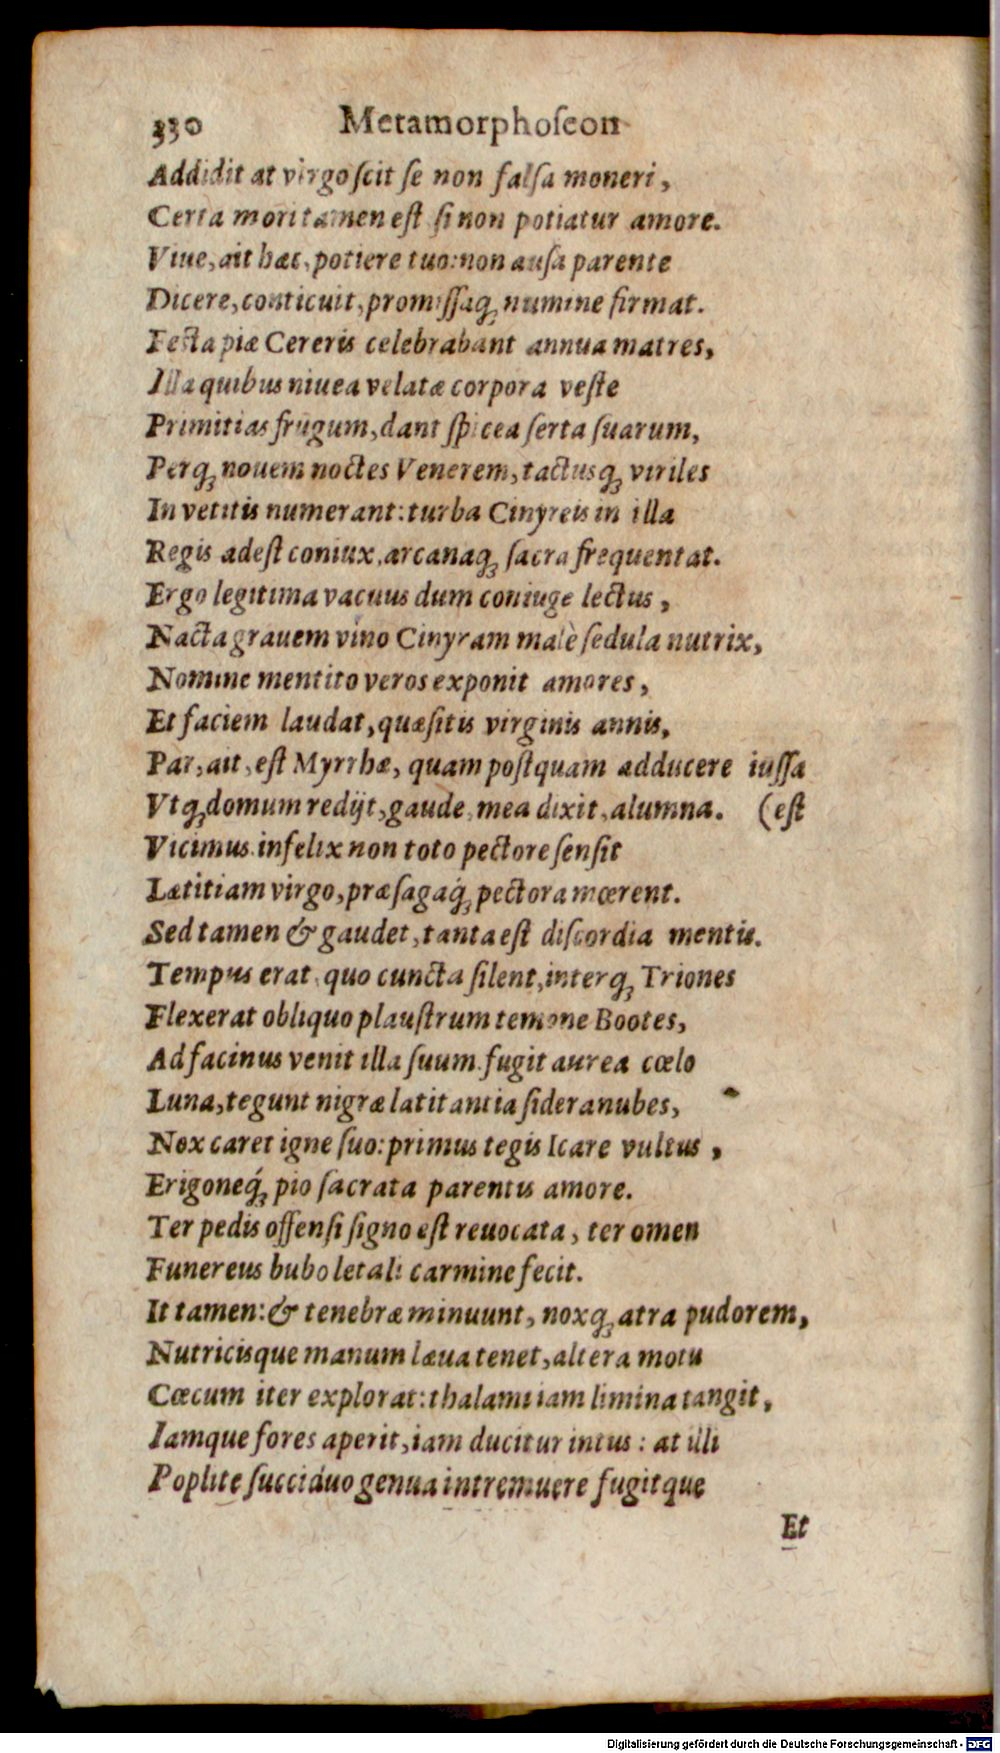 330 Metamorphoſeon
Addidit at virgo ſcit ſe non falſa moneri,
Certa mori tamen eſt ſi non potiatur amore.
Viue, ait hæc, potiere tuo: non auſa parente
Dicere, conticuit, promiſſaq́; numine firmat.
Feſta piæ Cereris celebrabant annua matres,
Illa quibus niuea velatæ corpora veſte
Primitias frugum, dant ſpicea ſerta ſuarum,
Perq́; nouem noctes Venerem, tactusq́; viriles
In vetitis numerant: turba Cinyreis in illa
Regis adeſt coniux, arcanaq́; ſacra frequentat.
Ergo legitima vacuus dum coniuge lectus,
Nacta grauem vino Cinyram malè ſedula nutrix,
Nomine mentito veros exponit amores,
Et faciem laudat, quæſitis virginis annis,
Par, ait, eſt Myrrhæ, quam poſtquam adducere iuſſa
Vtq́; domum redijt, gaude, mea dixit, alumna. (eſt
Vicimus. infelix non toto pectore ſenſit
Lætitiam virgo, præſagaq́; pectora mœrent.
Sed tamen & gaudet, tanta eſt diſcordia mentis.
Tempus erat, quo cuncta ſilent, interq́; Triones
Flexerat obliquo plauſtrum temone Bootes,
Ad facinus venit illa ſuum. fugit aurea cœlo
Luna, tegunt nigræ latitantia ſidera nubes,
Nox caret igne ſuo: primus tegis Icare vultus,
Erigoneq́; pio ſacrata parentis amore.
Ter pedis offenſi ſigno eſt reuocata, ter omen
Funereus bubo letali carmine fecit.
It tamen: & tenebræ minuunt, noxq́; atra pudorem,
Nutricisque manum læua tenet, altera motu
Cœcum iter explorat: thalami iam limina tangit,
Iamque fores aperit, iam ducitur intus: at illi
Poplite ſucciduo genua intremuere fugitque
Et
Digitalisierung gefördert durch die Deutsche Forschungsgemeinschaft - DFG